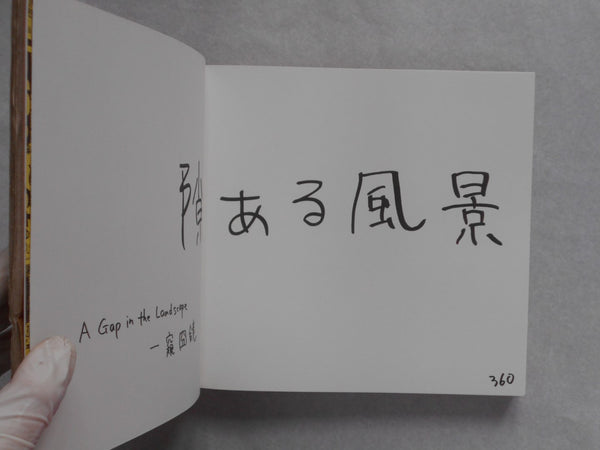 隙ある風景
A Gap in the Landscape
一窺囧
360